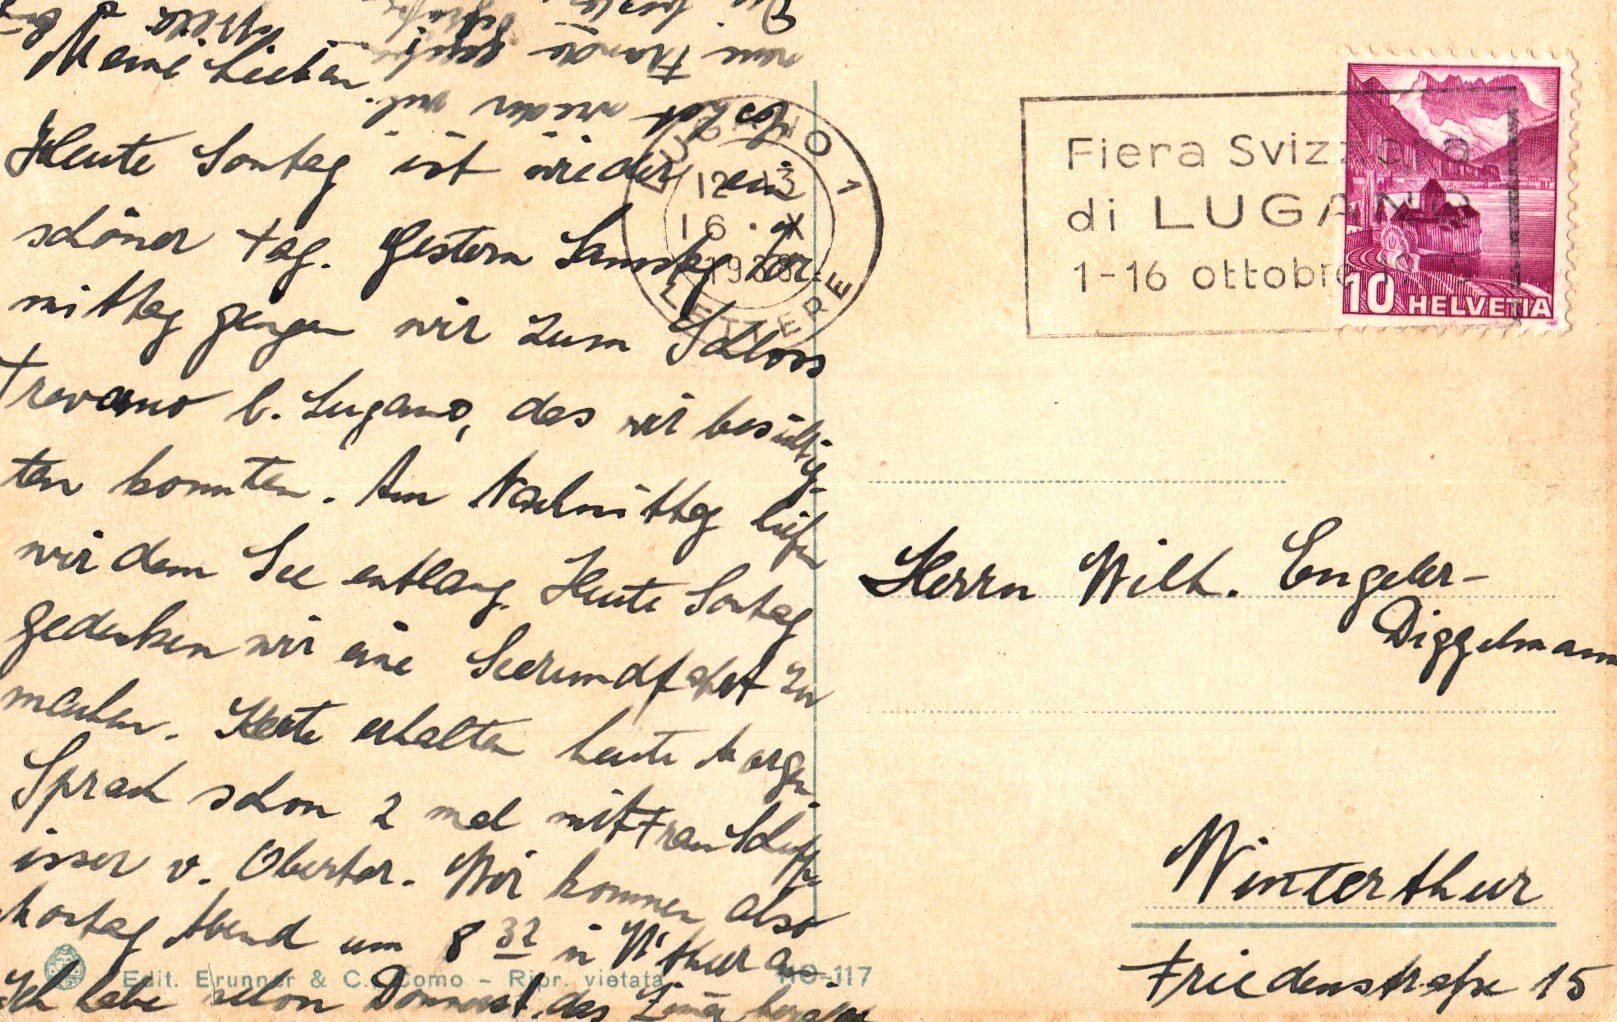 Meine Lieben
Heute Sontag ist wieder ein
schöner Tag. Gestern Samstag Vor-
mittag gingen wir zum Schloss
Trevano b. Lugano, das wir besichtig-
ten konnten. Am Nachmittag liefen
wir dem See entlang. Heute Sontag
gedenken wir eine Seerundfahrt zu
machen. Karte erhalten heute Morgen
Sprach schon 2 mal mit Frau
v. Obertor. Wir kommen also
Montag Abend um 8 32 in W'thur an.
Ich habe schon Donnerst. das
Es hat wieder
LUGANO 1
12-13
16. X
LETTERE
Fiera Svizzera
di LUGANO
1-16 ottobre
10 HELVETIA
Herrn Wilh. Engeler-
Diggelmann
Winterthur
Friedenstraße 15
Edit. Brunner & C. Como - Ripr. vietata
117